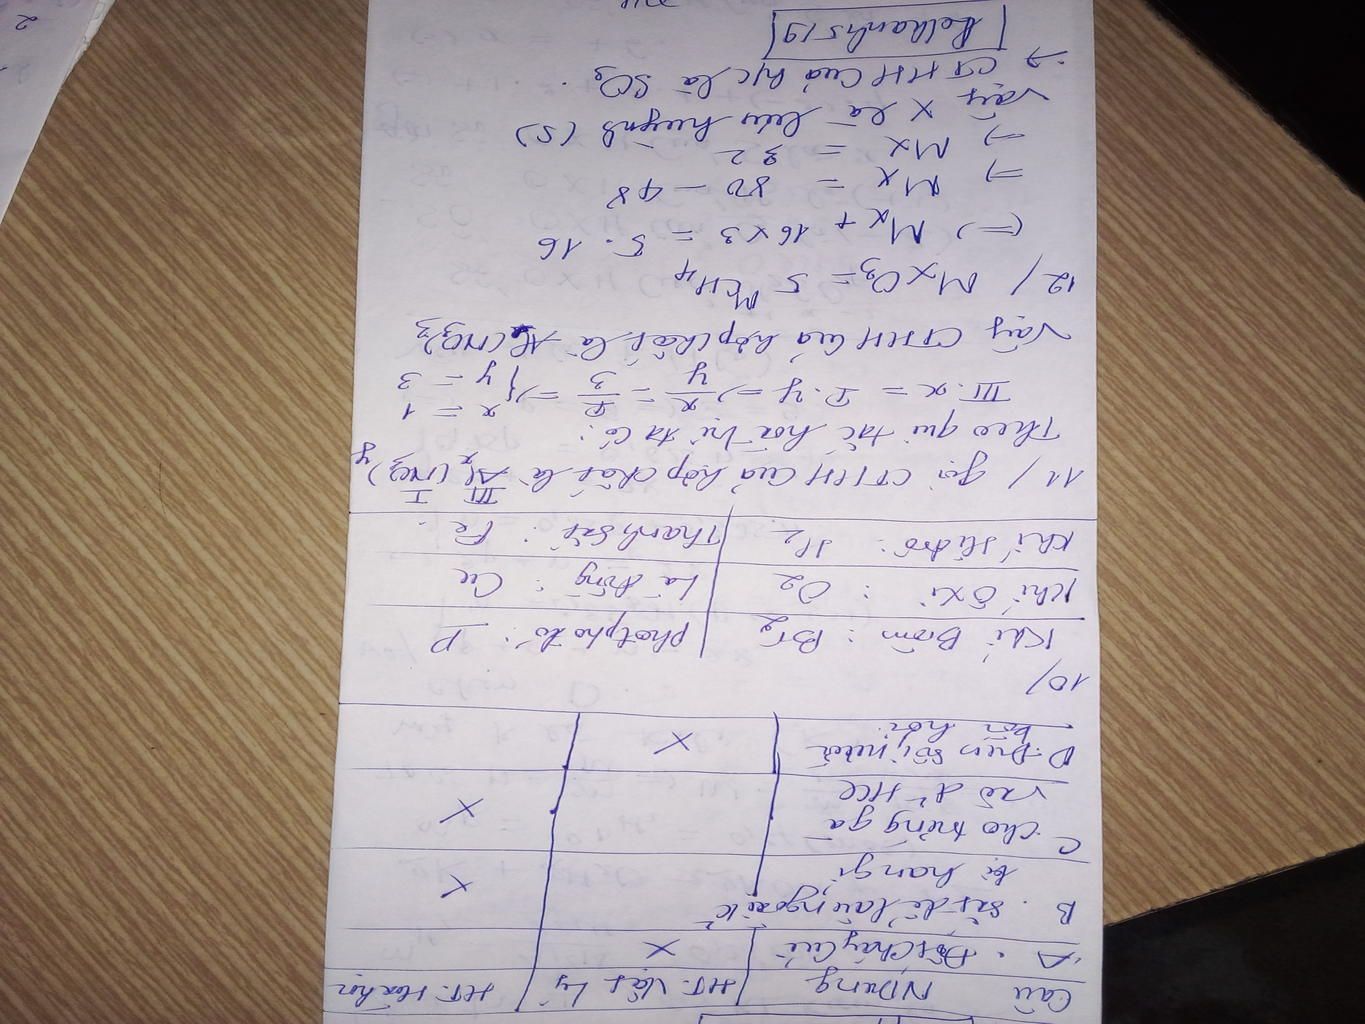 Câu NDung HT. Vật Lý HT. Hoá học
A. Đốt cháy củi X
B. Sắt để lâu ngoài k²
bị han gỉ X
C. Cho trứng gà
vào d² HCl X
D. Đun sôi, nước
bốc hơi. X
10/
Khí Brôm : Br2 photpho : P
Khí Ôxi : O2 Lá đồng : Cu
Khí Hidrô : H2 Thanh sắt : Fe
11/ gọi CTHH của hợp chất là Alx(NO3)y
III I
Theo qui tắc hoá trị ta có:
III.x = I.y => x/y = I/3 => { x = 1
y = 3
Vậy CTHH của hợp chất là Al(NO3)3
12/ MXO3 = 5 MCH4
(=) MX + 16x3 = 5.16
=> MX = 80 - 48
=> MX = 32
Vậy X là lưu huỳnh (S)
=> CTHH của h/c là SO3.